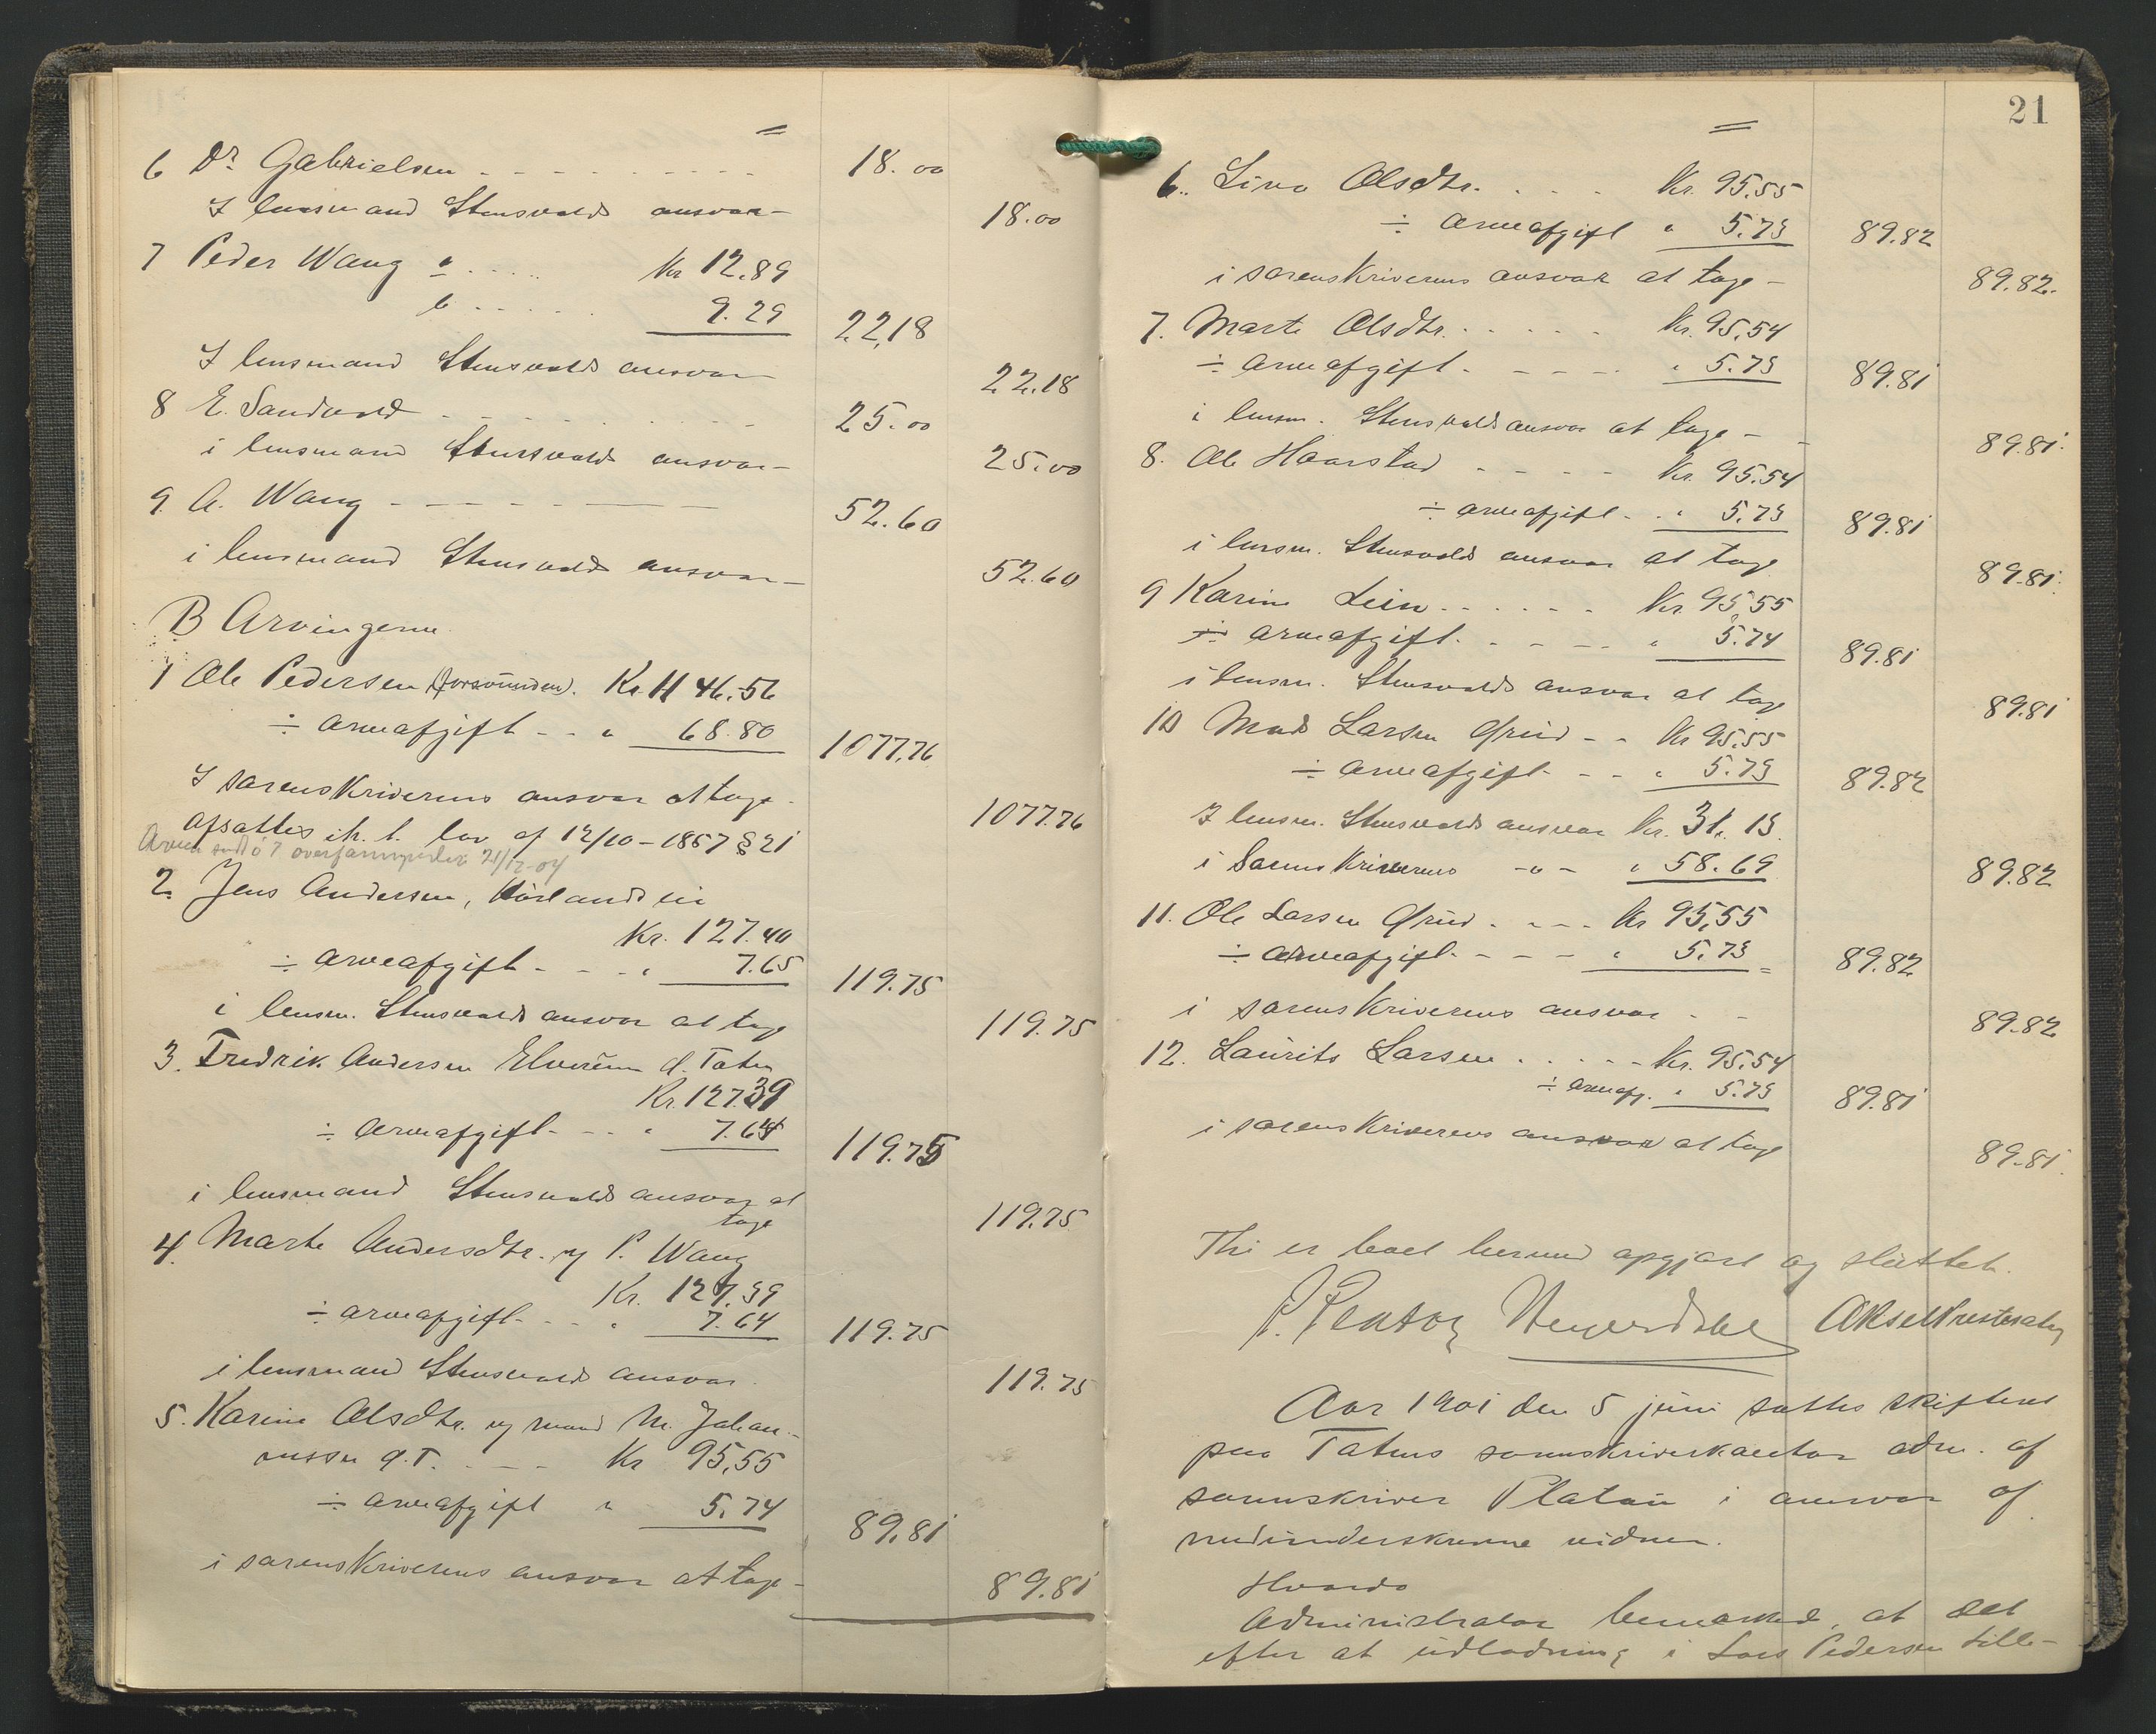 6 Dr Gabrielsen 18.00
I lensmand Stensvolds ansvar 18.00
7 Peder Wang a Kr 12.89
b 9.29 22.18
I lensmand Stensvolds ansvar 22.18
8 E. Sandvold 25.00
i lensmand Stensvolds ansvar 25.00
9. A. Wang 52.60
i lensmand Stensvolds ansvar 52.60
B Arvingerne
1 Ole Pedersen (forsvunden). Kr. 1146.56
÷ arveafgift " 68.80 1077.76
I sorenskriverens ansvar at tage 1077.76
afsattes ifr. l. lov af 12/10-1857 § 21
overformynderi 21/12-04
2. Jens Andersen,
Kr. 127.40
÷ arveafgift " 7.65 119.75
i lensm. Stensvolds ansvar at tage 119.75
3. Fredrik Andersen Elverum d. Toten
Kr. 127.39
÷ arveafgift " 7.64 119.75
i lensmand Stensvolds ansvar at
tage 119.75
4. Marte Andersdtr. v/ P. Wang
Kr. 127.39
÷ arveafgift " 7.64 119.75
i lensmand Stensvolds ansvar 119.75
5. Karine Olsdtr. v/ mand M. Johan-
nessen Ø.T. Kr 95.55
÷ arveafgift " 5.74 89.81
i sorenskriverens ansvar at tage 89.81
21
6. Lina Olsdtr. Kr. 95.55
÷ arveafgift " 5.73 89.82
i sorenskriverens ansvar at tage 89.82.
7. Marte Olsdtr. Kr. 95.54
÷ arveafgift " 5.73 89.81
i lensm. Stensvolds ansvar at tage 89.81.
8. Ole Haarstad Kr. 95.54
÷ arveafgift " 5.73 89.81
i lensm. Stensvolds ansvar at tage 89.81.
9 Karine Lein Kr. 95.55
÷ arveafgift " 5.74 89.81
i lensm. Stensvolds ansvar at tage 89.81
10 Mads Larsen Kr 95.55
÷ arveafgift " 5.73 89.82
I lensm. Stensvolds ansvar Kr. 31.13
i Sorenskriverens -"- " 58.69 89.82
11. Ole Larsen Kr 95.55
÷ arveafgift " 5.73 89.82
i sorenskriverens ansvar 89.82
12. Laurits Larsen Kr. 95.54
÷ arveafg. " 5.73 89.81
i sorenskriverens ansvar at tage 89.81.
Thi er boet herved opgjort og sluttet.
Heyerdahl Aksel
Aar 1901 den 5 juni sattes skifteret
paa Totens sorenskriverkontor adm. af
sorenskriver Platou i nærvær af
medunderskrevne vidner.
Hvorda
Administrator bemærkede, at det
efter at udlodning i Lars Pedersen Lille-